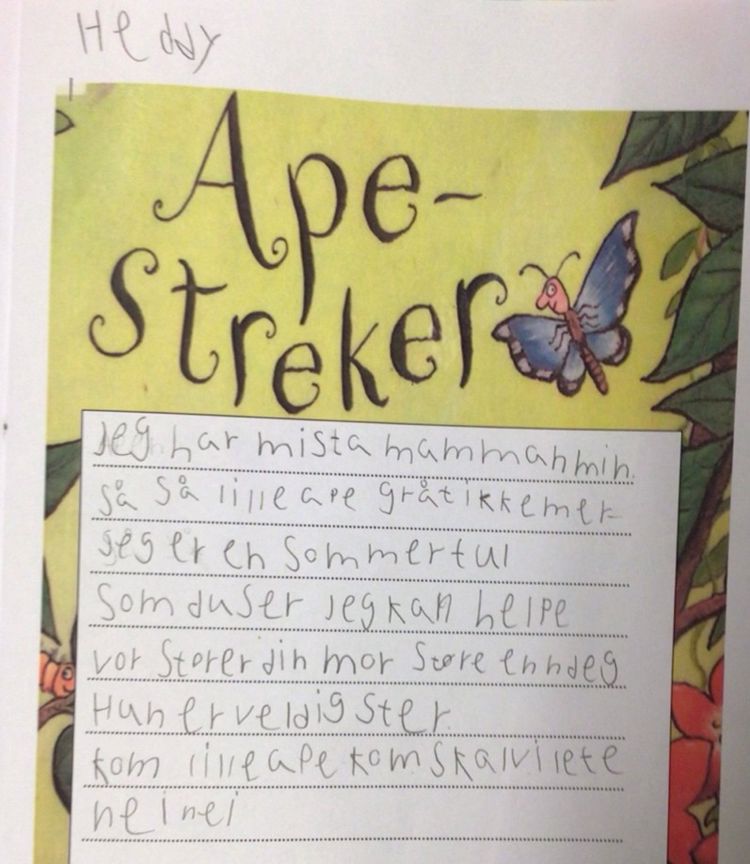 Heddy
Ape-
streker
Jeg har mista mammahmin.
så så lille ape gråt ikkemer
jeg er en Sommerful
Som duser jeg kan helpe
vor Storer din mor Støre enndeg
Hun er veldig Ster
kom lille ape kom skalvi lete
nei nei